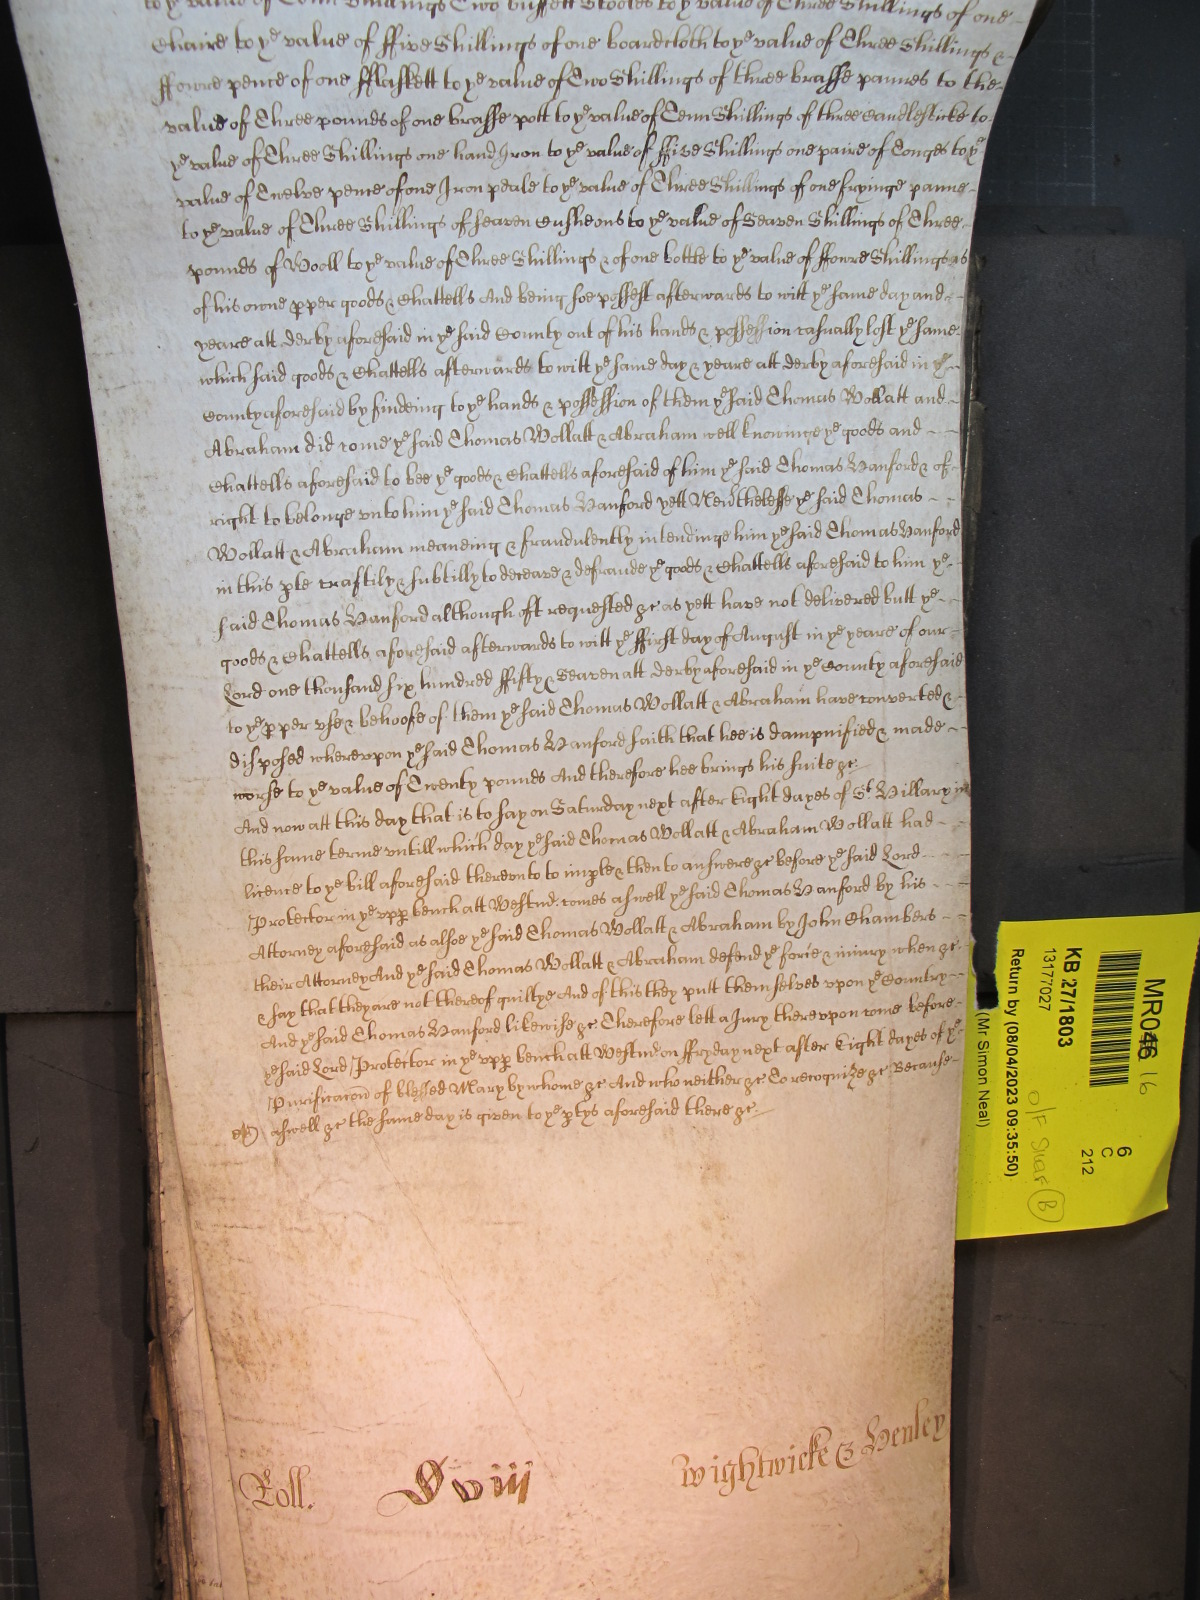 to ye value of Tenn Shillings Two buffett Stooles to ye value of Three Shillings of one
Chaire to ye value of ffive Shillings of one boardcloth to ye value of Three Shillings &
ffowre pence of one fflaskett to ye value of Two Shillings of three brasse pannes to the
value of Three pounds of one brasse pott to ye value of Tenn Shillings of three Candlesticke to
ye value of Three Shillings one hand Iron to ye value of ffive Shillings one paire of Tonges to ye
value of Twelve pence of one Iron peale to ye value of Three Shillings of one fryinge panne
to ye value of Three Shillings of seaven Cusheons to ye value of Seaven Shillings of Three
pounds of Wooll to ye value of Three Shillings & of one bottle to ye value of ffowre Shillings as
of his owne pper goods & Chattells And being soe possest afterwards to witt ye same day and
yeare att derby aforesaid in ye said County out of his hands & possession casually lost ye same
which said goods & Chattells afterwards to witt ye same day & yeare att derby aforesaid in ye
County aforesaid by findeing to ye hands & possession of them ye said Thomas Wollatt and
Abraham did come ye said Thomas Wollatt & Abraham well knowinge ye goods and
Chattells aforesaid to bee ye goods & Chattells aforesaid of him ye said Thomas Hanford & of
right to belonge unto him ye said Thomas Hanford yett Nevthelesse ye said Thomas
Wollatt & Abraham meaneing & fraudulently intendinge him ye said Thomas Hanford
in this pte craftily & subtilly to deceave & defraude ye goods & Chattells aforesaid to him ye
said Thomas Hanford although oft requested &c as yett have not delivered butt ye
goods & Chattells aforesaid afterwards to witt ye ffirst day of August in ye yeare of our
Lord one thousand six hundred ffifty & Seaven att derby aforesaid in ye County aforesaid
to ye pper use & behoofe of them ye said Thomas Wollatt & Abraham have converted &
disposed whereupon ye said Thomas Hanford saith that hee is dampnified & made
worse to ye value of Twenty pounds And therefore hee brings his suite &c
And now att this day that is to say on Saturday next after Eight dayes of St Hillary in
this same terme untill which day ye said Thomas Wollatt & Abraham Wollatt had
licence to ye bill aforesaid thereunto to imple & then to answere &c before ye said Lord
Protector in ye upp bench att Westm. comes aswell ye said Thomas Hanford by his
Attorney aforesaid as alsoe ye said Thomas Wollatt & Abraham by John Chambers
their Attorney And ye said Thomas Wollatt & Abraham defend ye force & iniury when &c
& say that they are not thereof guiltye And of this they putt themselves upon ye Country
And ye said Thomas Hanford likewise &c Therefore lett a Jury thereupon come before
ye said Lord Protector in ye upp bench att Westm on ffryday next after Eight dayes of ye
Purificacon of blessed Mary by whome &c And who neither &c To recognize &c Because
aswell &c the same day is given to ye ptys aforesaid there &c
Roll. Wightwicke & Henley
MR046 16
KB 27/1803
13177027
Return by (08/04/2023 09:35:50)
(Mr Simon Neal)
6
C
212
O/F
B